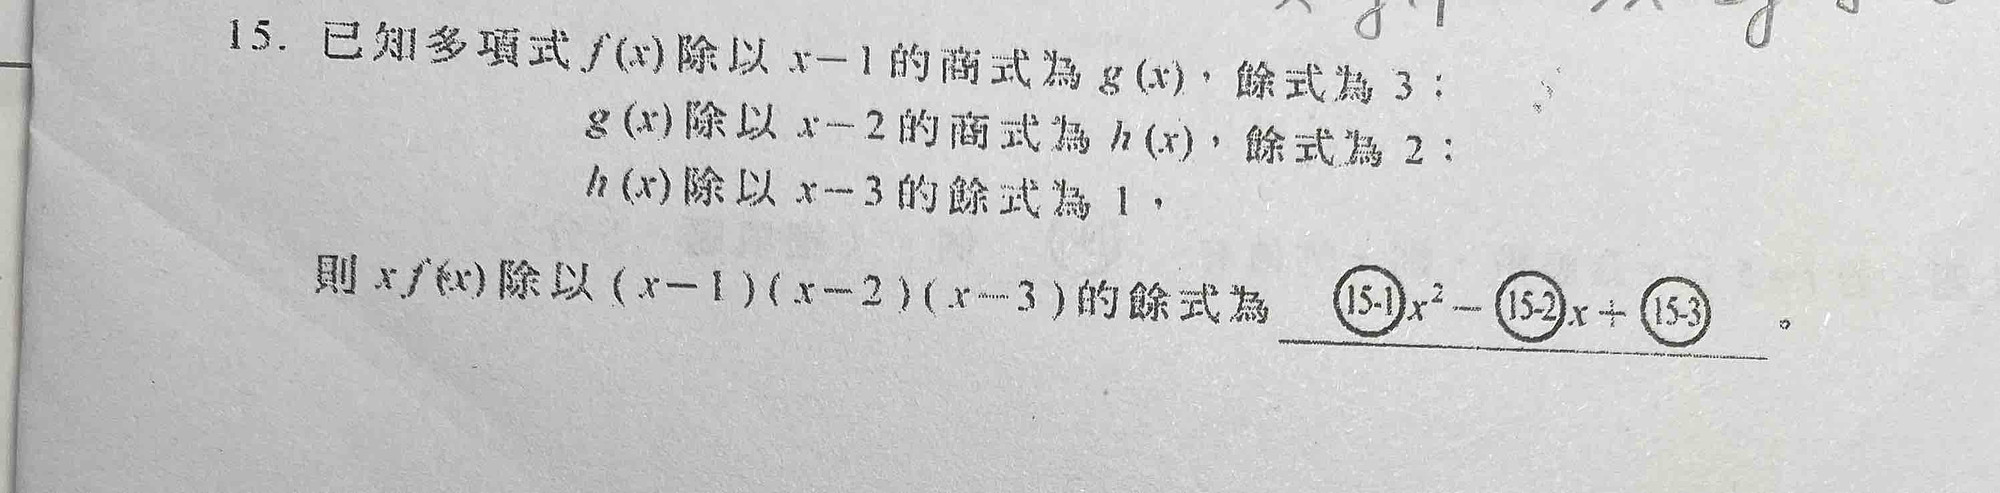 15. 已知多項式 f(x) 除以 x－1 的商式為 g(x)，餘式為 3；
g(x) 除以 x－2 的商式為 h(x)，餘式為 2；
h(x) 除以 x－3 的餘式為 1，
則 xf(x) 除以 (x－1)(x－2)(x－3) 的餘式為 (15-1)x²－(15-2)x＋(15-3)。